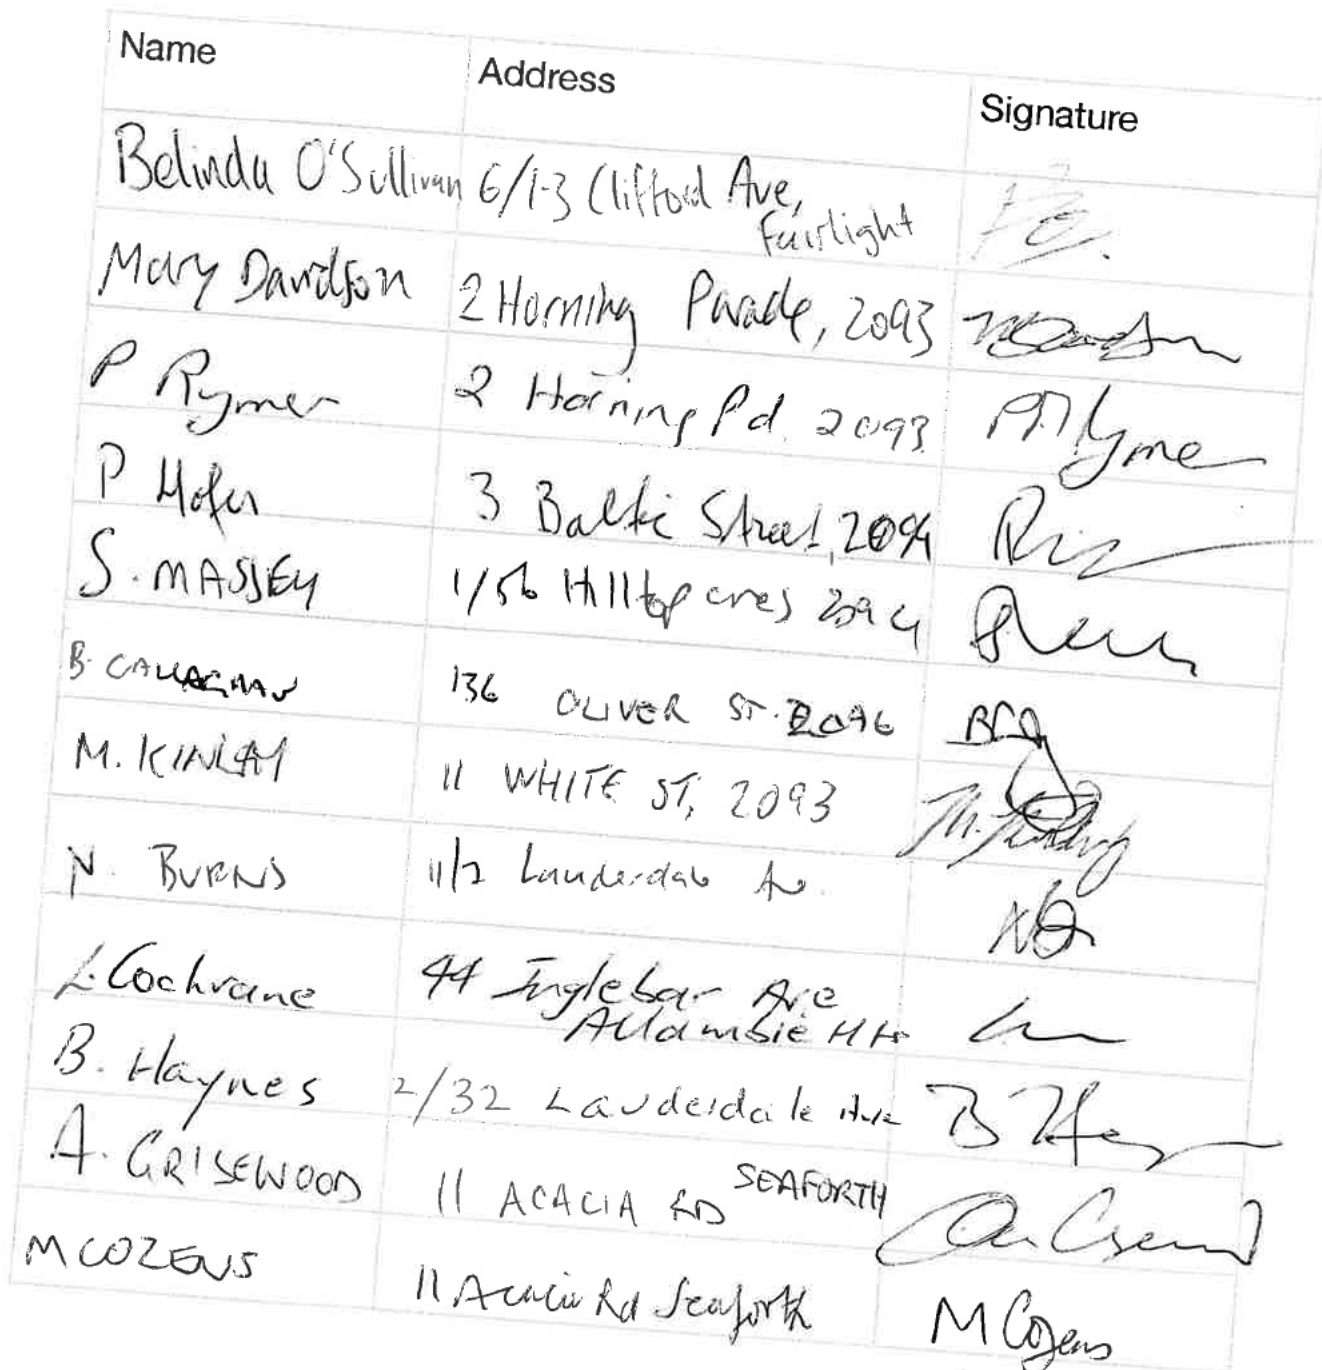 Name Address Signature
Belinda O'Sullivan 6/1-3 Clifford Ave,
Fairlight
Mary Davidson 2 Horning Parade, 2093
P Rymer 2 Horning Pd. 2093
P Hofer 3 Baltic Street, 2094
S. MASSEY 1/56 Hilltop cres 2094
B. CALLAGHAN 136 OLIVER ST. 2096
M. KINLAY 11 WHITE ST, 2093
N. BURNS 11/2 Lauderdale Av.
L. Cochrane 44 Inglebar Ave
Allambie Hts
B. Haynes 2/32 Lauderdale Ave B Hay
A. GRISEWOOD 11 ACACIA RD SEAFORTH
M COZENS 11 Acacia Rd Seaforth M Cozens